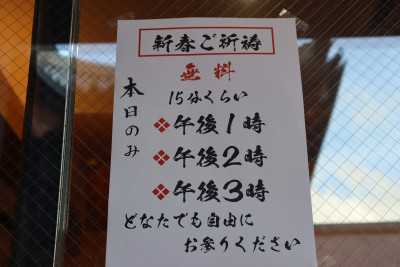 新春ご祈祷
無料
本日のみ
15分くらい
❖午後1時
❖午後2時
❖午後3時
どなたでも自由に
お参りください